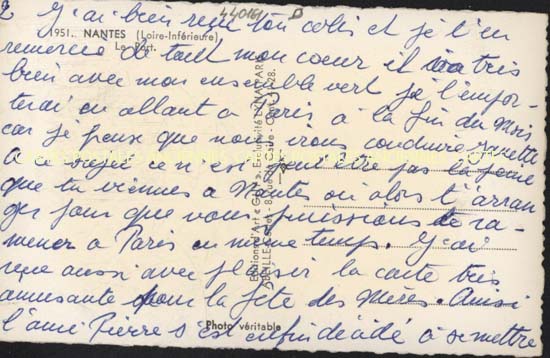 2 J'ai bien reçu ton colis et je t'en
440161 B
1951. NANTES (Loire-Inférieure)
Le Port.
remercie de tout mon coeur il ira très
bien avec mon ensemble vert je l'empor-
terai en allant à Paris à la fin du mois
car je pense que nous irons conduire
a ce sujet ce n'est peut être pas la peine
que tu viennes à Nantes ou alors t'arran
ger pour que nous puissions te ra-
mener à Paris en même temps. J'ai
reçu aussi avec plaisir la carte très
amusante pour la fête des Mères. Ainsi
l'ami Pierre s'est enfin décidé à se mettre
Editions d'Art
Photo véritable